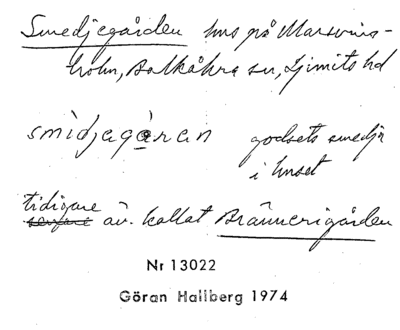 Smedjegården hus på Marsvins-
holm, Balkåkra sn, Ljunits hd
smìdjagàran godsets smedja
i huset
tidigare
senare äv. kallat Brännerigården
Nr 13022
Göran Hallberg 1974